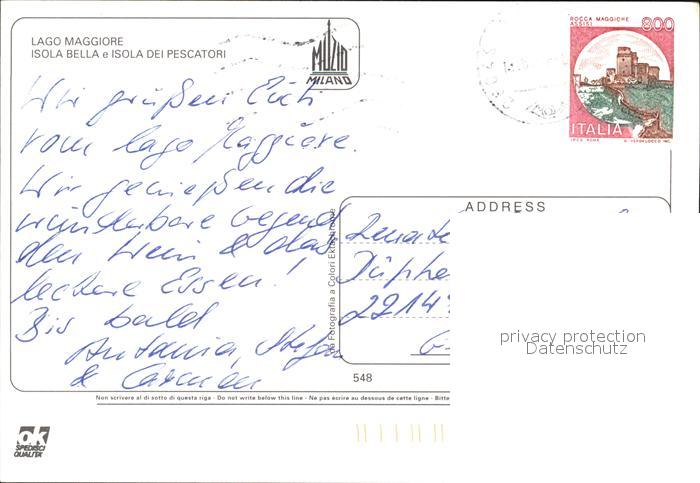 LAGO MAGGIORE
ISOLA BELLA e ISOLA DEI PESCATORI
MUZIO
MILANO
ROCCA MAGGIORE
ASSISI
800
ITALIA
I.P.Z.S. ROMA
Wir grüßen Euch
vom Lago Maggiore.
Wir genießen die
wunderbare Gegend
den Wein & das
leckere Essen!
Bis bald
Antonia, Stefan
& Carmen
ADDRESS
Renate
22147
privacy protection
Datenschutz
Fotografia a Colori Ektachrome
548
Non scrivere al di sotto di questa riga - Do not write below this line - Ne pas écrire au dessous de cette ligne - Bitte
ok
SPEDISCI
QUALITÀ